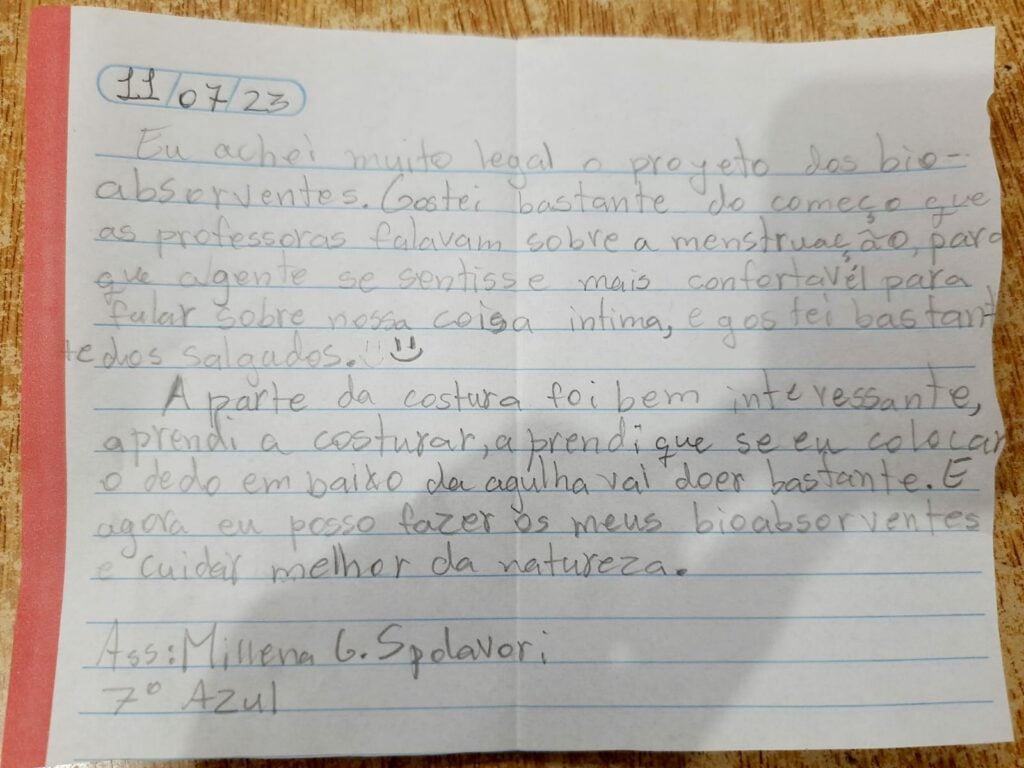 11/07/23
Eu achei muito legal o proyeto dos bio-
absorventes. Gostei bastante do começo que
as professoras falavam sobre a menstruação, para
que agente se sentisse mais confortavél para
falar sobre nossa coisa intima, e gostei bastant
te dos salgados.
A parte da costura foi bem interessante,
aprendi a costurar, aprendi que se eu colocar
o dedo em baixo da agulha vai doer bastante. E
agora eu posso fazer os meus bioabsorventes
e cuidar melhor da natureza.
Ass: Millena G. Spolavori
7º Azul